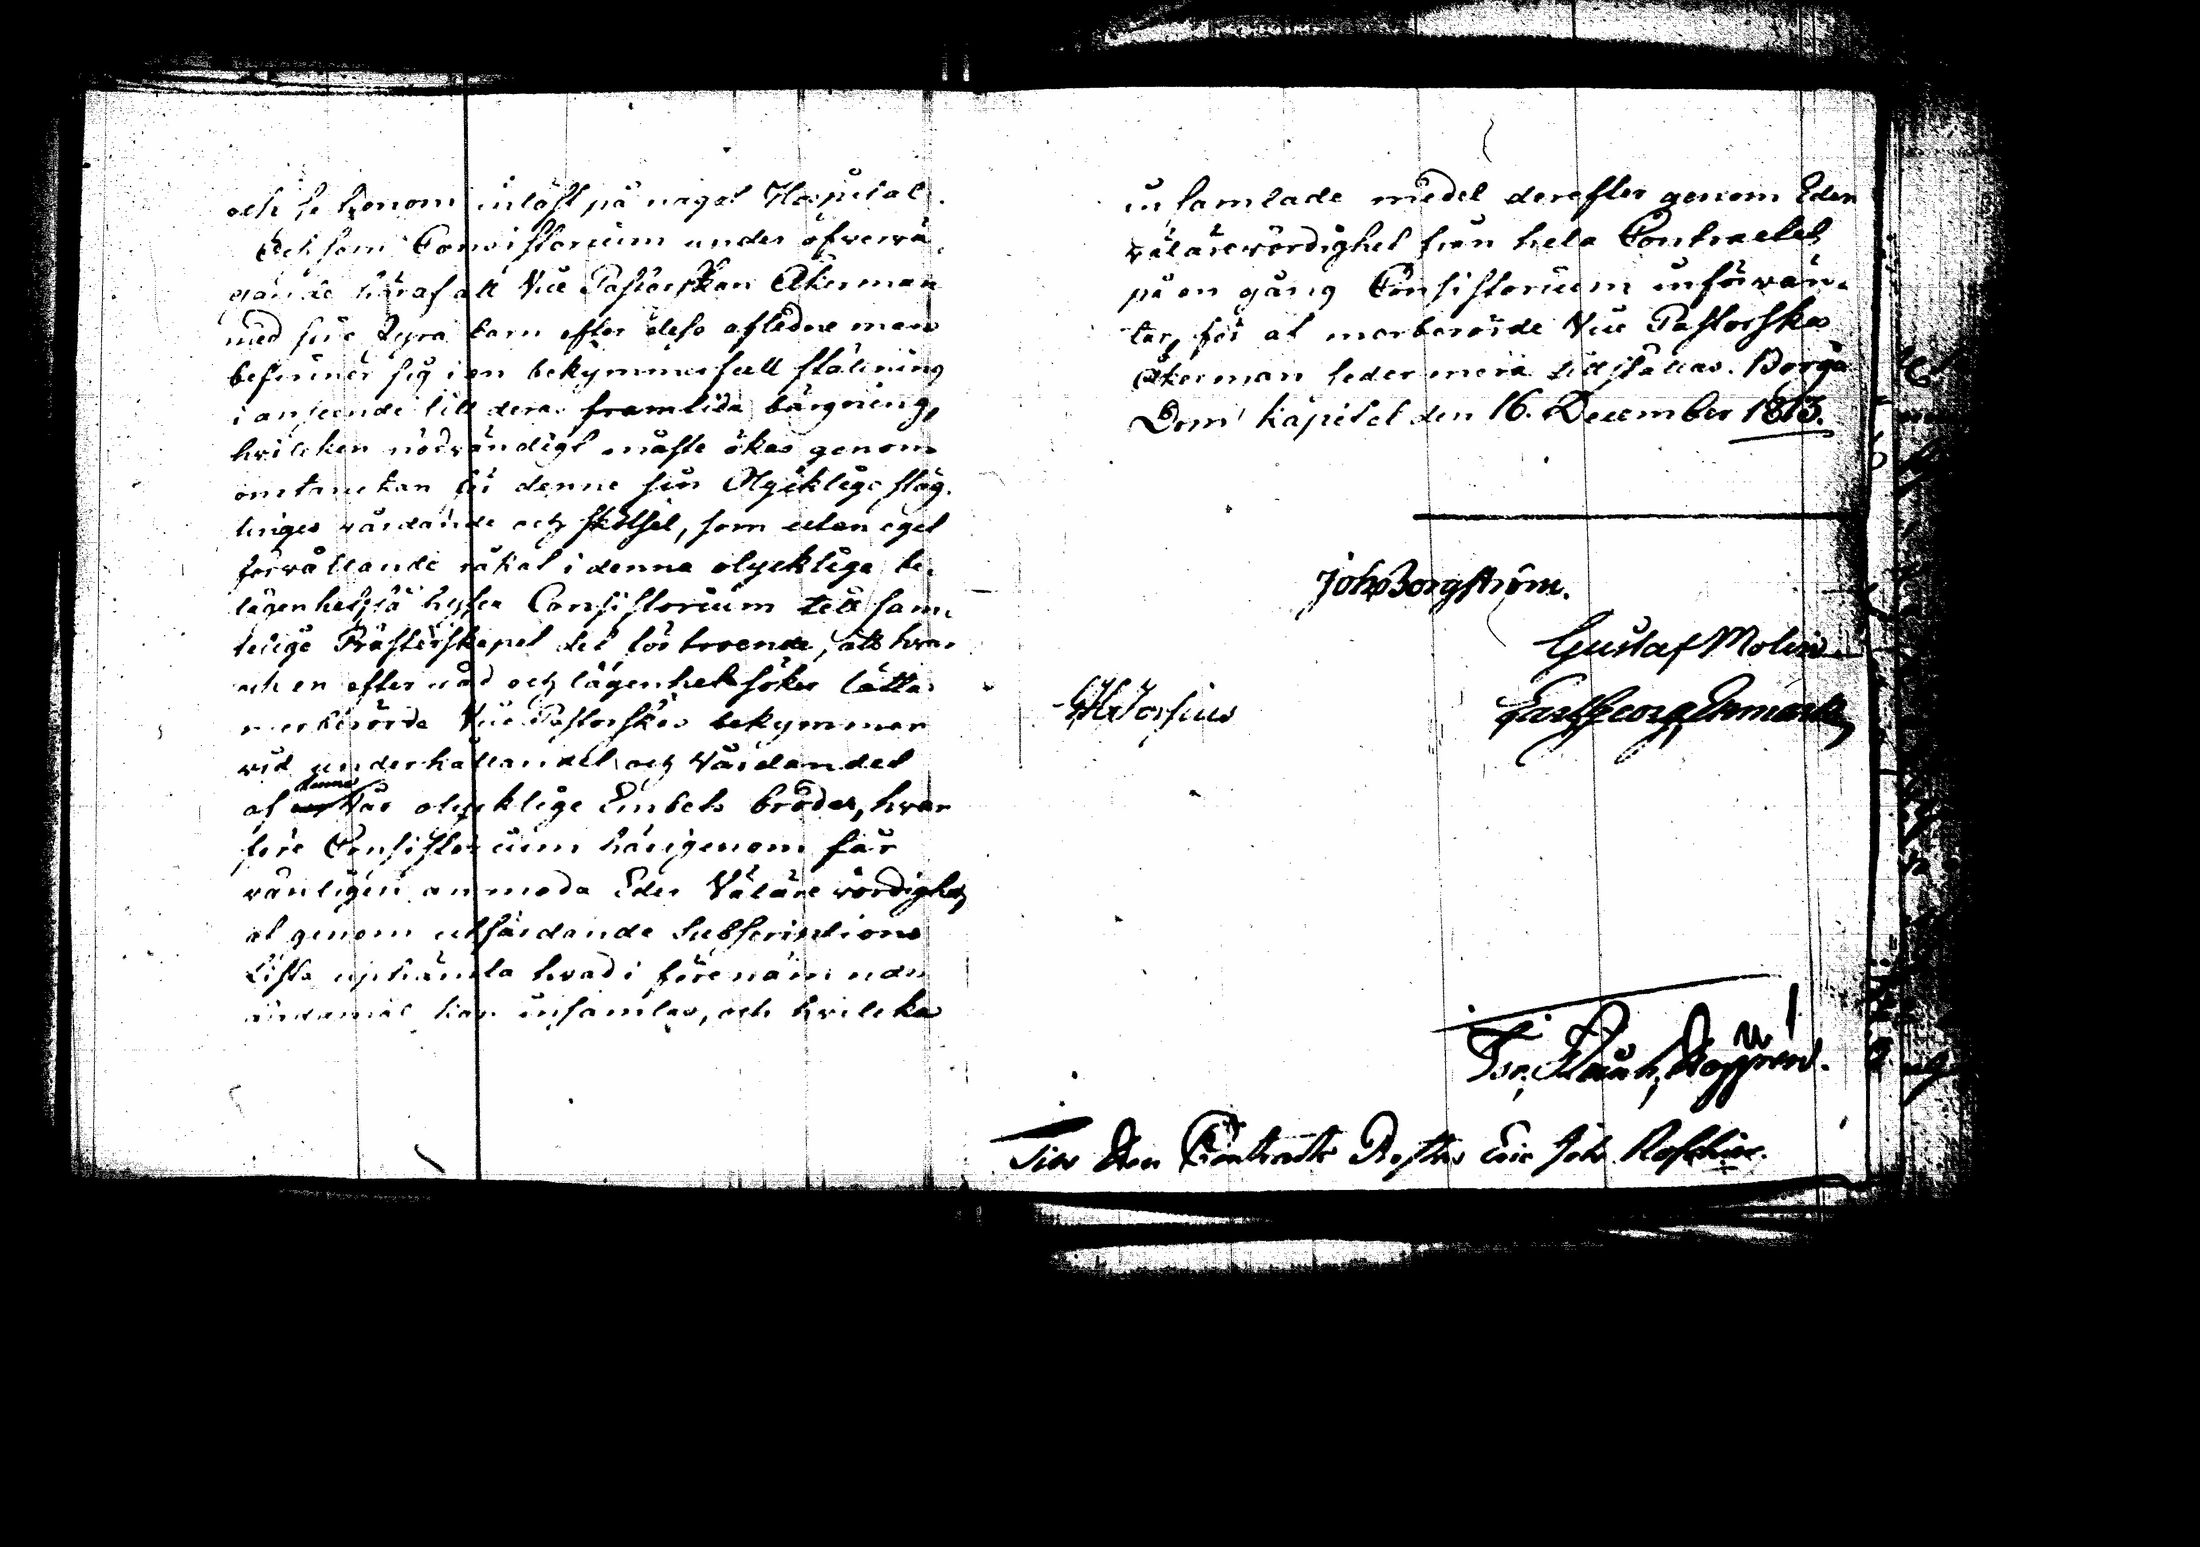 och se honom inlöst på något Hospital.
Och som Consistorium under öfvervä-
gande häraf att Vice Pastorskan Åkerman
med sine fyra barn efter dess aflidne man
befinner sig i en bekymmersfull ställning
i anseende till dera framtida bärgning,
hvilcken nödvändigt måste ökas genom
omtanckan för denne sin Olycklige släg-
tinges vårdande och skötsel, som utan eget
förvållande råkat i denna olycklige be-
lägenhet, så hyser Consistorium till sam-
telige Prästerskapet det förtroende, att hvar
och en efter råd och lägenhet söker lätta
merberörde Vice Pastorskas bekymmer
vid underhållandet och Vårdandet
af denne Vår olycklige Embets broder, hvar
före Consistorium härigenom får
vänligen anmoda Eder Välärevördighet,
at genom utfärdande Subscriptions
Lista uphämta hvad i förenämnde
ändamål kan insamlas, och hvilcka
insamlade medel derefter genom Eder
välärevördighet från hela Contractet
på en gång Consistorium införvän-
tar, för at merberörde Vice Pastorska
Åkerman sedermera tillställas. Borgå
Dom kapitel den 16. December 1813.
Joh Borgström.
Gustaf Molin
Carl Georg Enmark
Til Contracts Prosten Eric Joh.